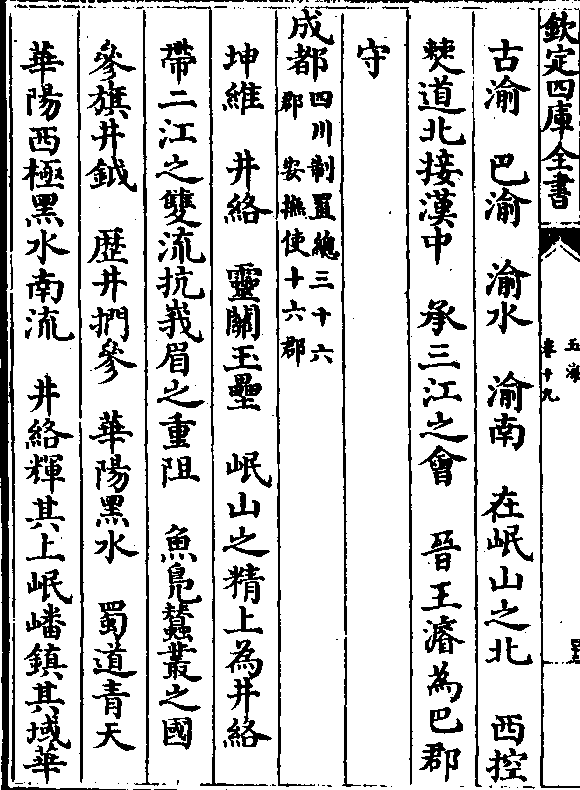 欽定四庫全書
玉海
卷十九
古渝　巴渝　渝水　渝南　在岷山之北　西控
僰道北接漢中　承三江之會　晉王濬為巴郡
守
成都四川制置總三十六
郡　安撫使十六郡
坤維　井絡　靈關玉壘　岷山之精上為井絡
帶二江之雙流抗峩眉之重阻　魚鳧蠶叢之國
參旗井鉞　歴井捫參　華陽黑水　蜀道青天
華陽西極黑水南流　井絡輝其上岷嶓鎮其域華